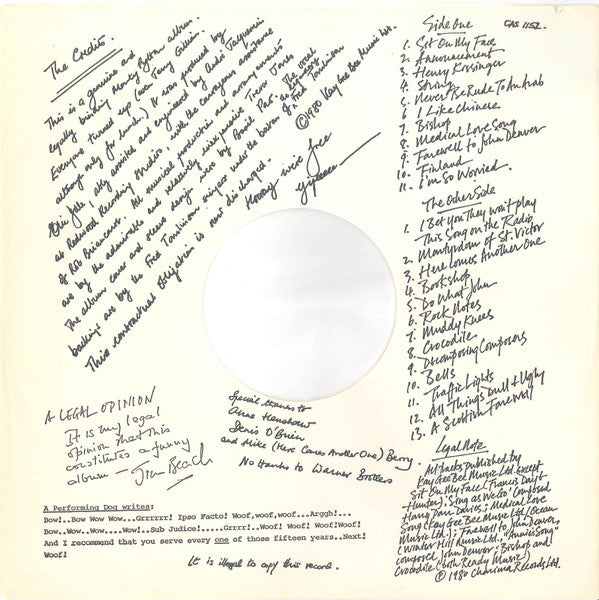 The Credits.
This is a genuine and
legally binding Monty Python album.
Everyone turned up (even Terry Gilliam
although only for lunch.) It was produced by
Eric Idle, ably assisted and engineered by André Jacquemin
at Redwood Recording Studios, with the courageous assistance
of Rob Briancourt. All musical production and arrangements
are by the admirable and relatively inexpensive Trevor Jones
The album cover and sleeve design were by Basil Pao. The vocal
backings are by the Fred Tomlinson singers under the baton of the legendary Fred Tomlinson
This contractual obligation is now discharged.
©1980 Kay Gee Bee Music Ltd.
Hooray we're free
Yipeeee
Side One
CAS 1152
1. Sit On My Face
2. Announcement
3. Henry Kissinger
4. String
5. Never Be Rude To An Arab
6 I Like Chinese
7. Bishop
8. Medical Love Song
9. Farewell to John Denver
10. Finland
11. I'm So Worried.
The Other Side
1. I Bet You They won't play
This Song on the Radio
2. Martyrdom of St. Victor
3. Here Comes Another One
4. Bookshop
5. Do What John
6. Rock Notes
7. Muddy Knees
8. Crocodile
9. Decomposing Composers
10. Bells
11. Traffic Lights
12. All Things Dull & Ugly
13. A Scottish Farewell
Legal Note
All tracks published by
Kay Gee Bee Music Ltd. except
Sit On My Face (Francis Day &
Hunter). Sing as We Go' Composed
Harry Parr Davies; Medical Love
Song (Kay Gee Bee Music Ltd/Ocean
Music Ltd.); Farewell to John Denver,
(Winter Hill Music Ltd., "Annie's Song"
composed John Denver; Bishop and
Crocodile (both Ready Music)
© 1980 Charisma Records Ltd.
A LEGAL OPINION
It is my legal
opinion that this
constitutes a funny
album —
Jim Beach
Special thanks to
Anne Henshaw
Denis O'Brien
and Mike (Here Comes Another One) Berry.
No thanks to Warner Brothers
A Performing Dog writes:
Bow!..Bow Wow Wow...Grrrrrr! Ipso Facto! Woof,woof,woof...Arggh!...
Bow..Wow..Wow....Wow!..Sub Judice!.....Grrrr!..Woof! Woof! Woof!Woof!
And I recommend that you serve every one of those fifteen years..Next!
Woof!
It is illegal to copy this record.